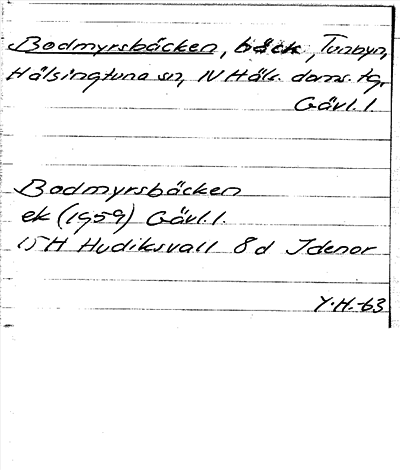 Bodmyrsbäcken, bäck, Tunbyn,
Hälsingtuna sn, N Häls. doms. tg,
Gävl. l.
Bodmyrsbäcken
ek (1959) Gävl. l.
15H Hudiksvall 8d Idenor
Y.H.-63